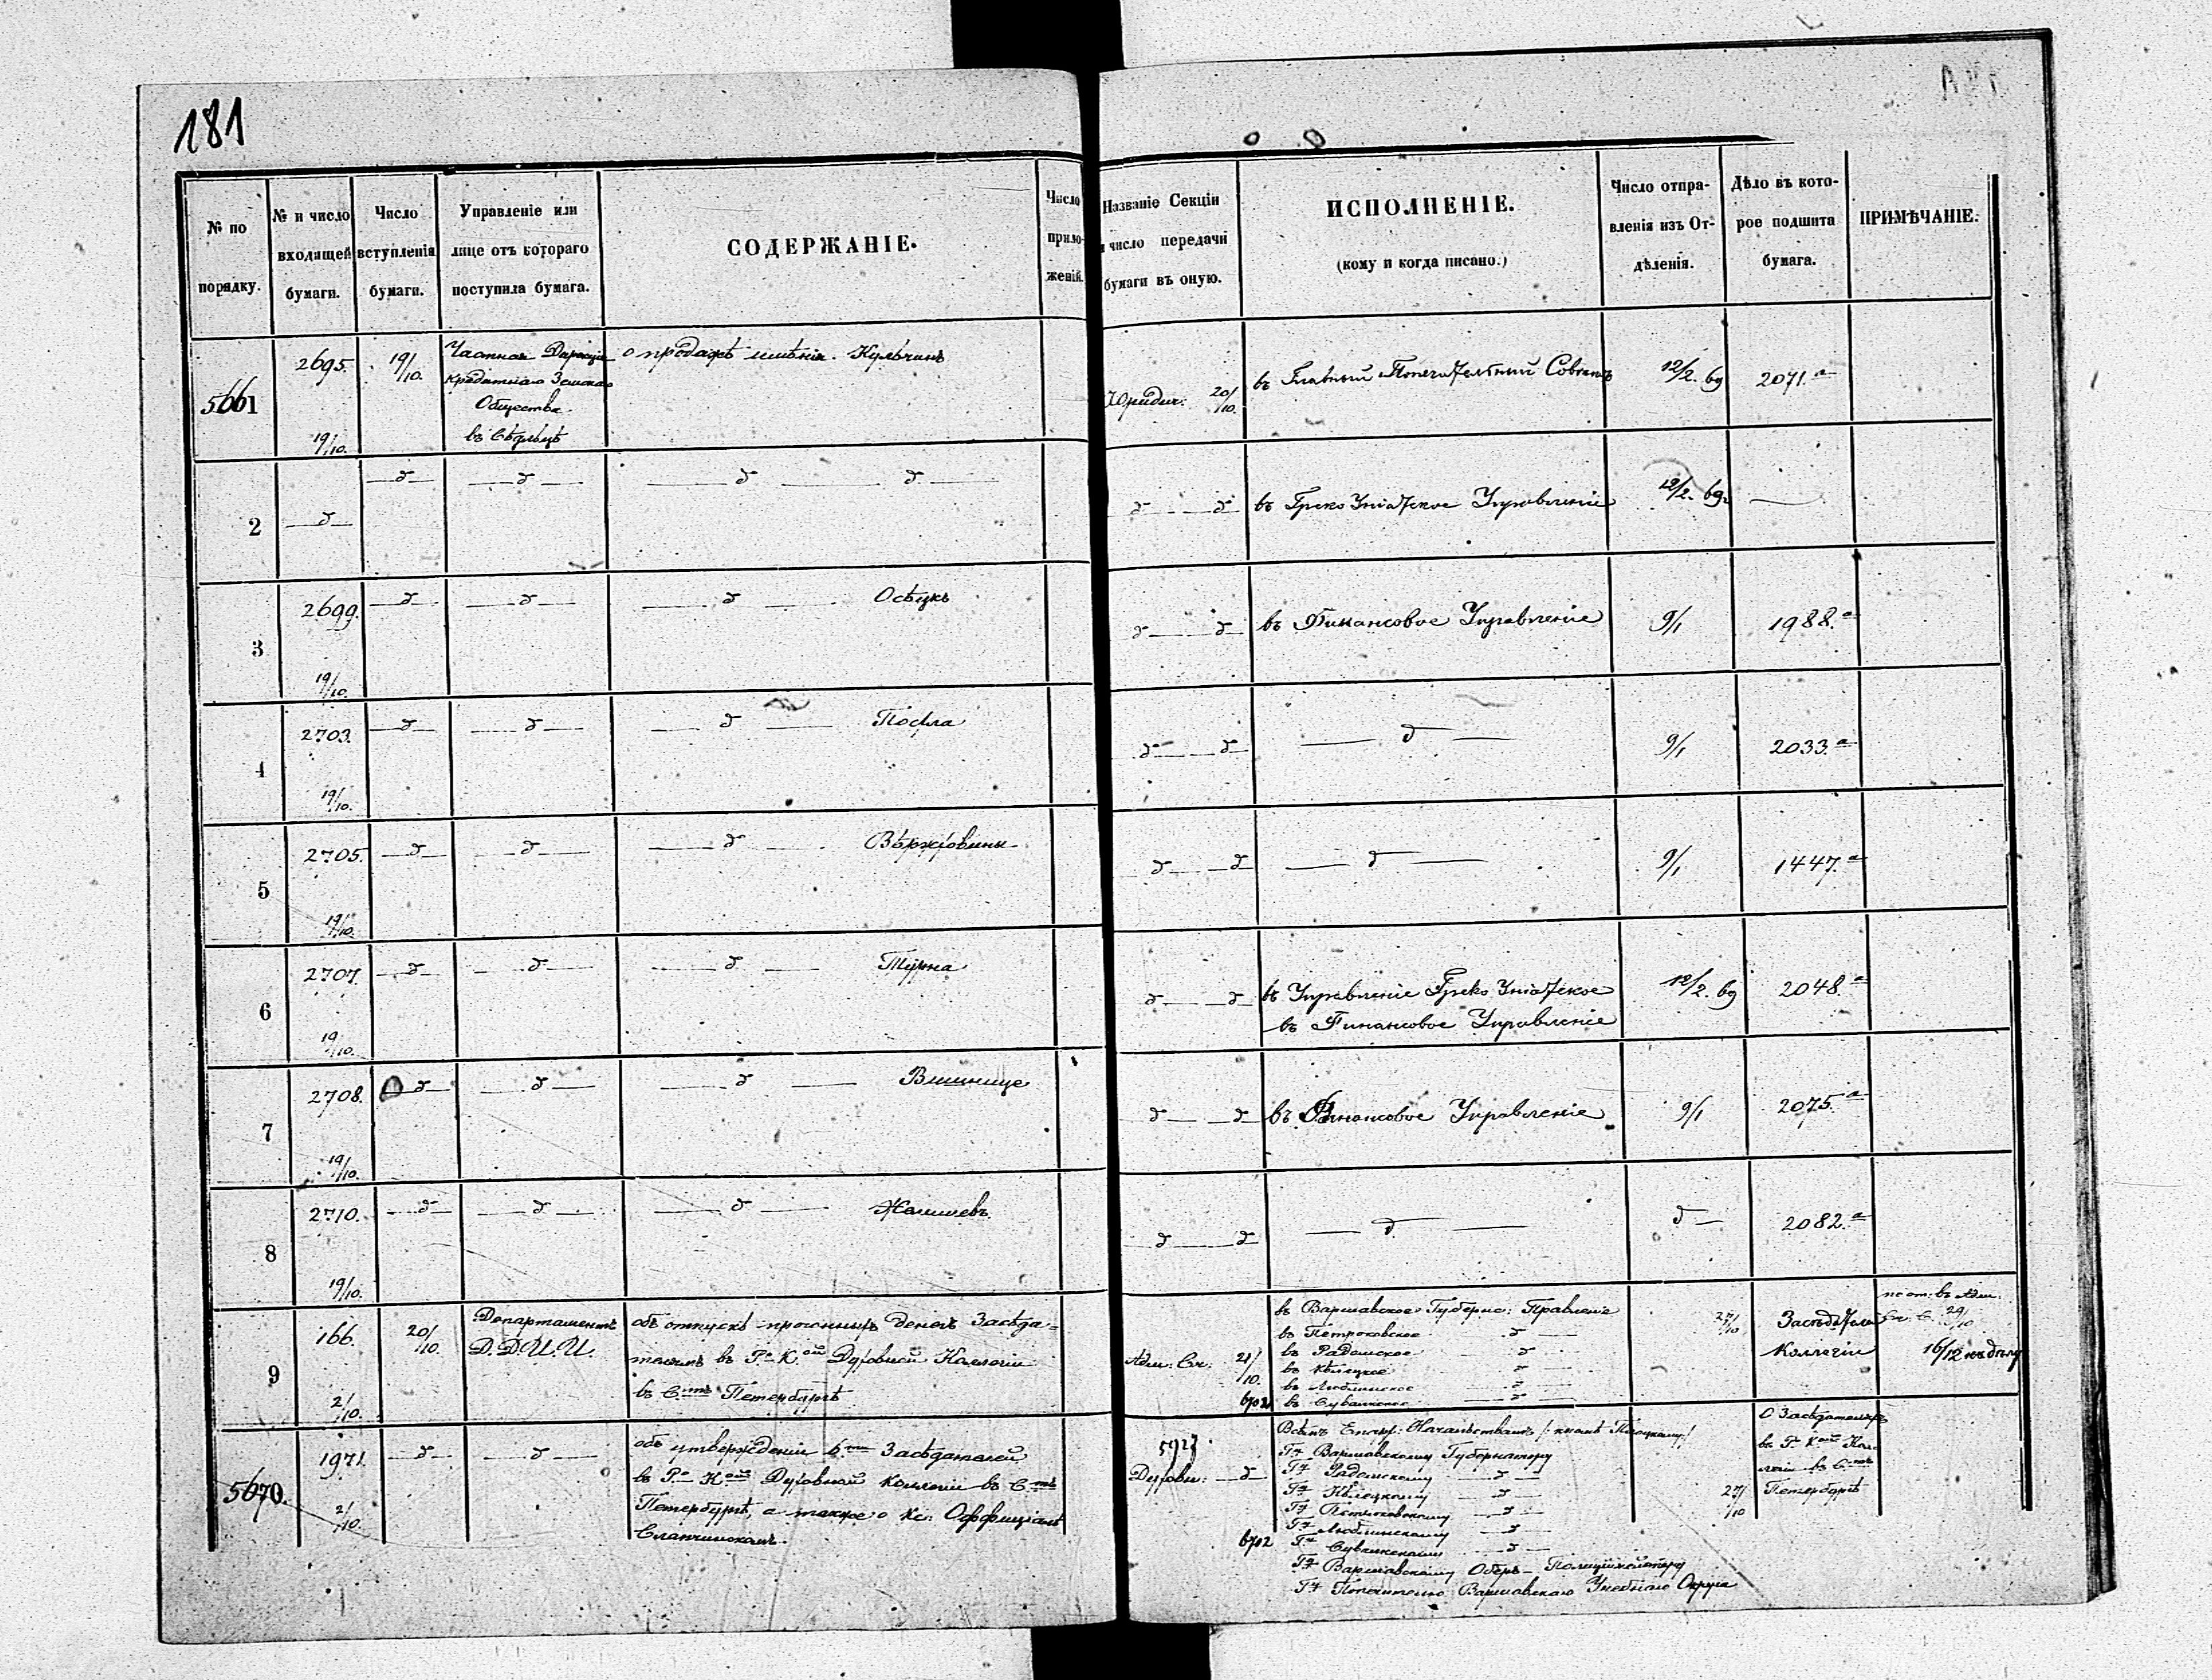 181
№ по порядку.
№ и число входящей бумаги.
Число вступленія бумаги.
Управленіе или лице отъ котораго поступила бумага.
СОДЕРЖАНІЕ.
Число приложеній.
Названіе Секціи и число передачи бумаги въ оную.
ИСПОЛНЕНІЕ.
(кому и когда писано.)
Число отправленія изъ Отдѣленія.
Дѣло въ которое подшита бумага.
ПРИМѢЧАНІЕ.
5661
2695.
19/10.
19/10.
Частная Дирекція
Кредитнаго Земскаго
Общества
въ Сѣдльцѣ
о продажѣ имѣнія. Кульчинъ
Юридич: 20/10.
въ Главный Попечительный Совѣтъ
12/2. 69
2071.а
2
въ Греко Уніатское Управленіе
12/2. 69
3
2699.
19/10.
Осѣцкъ
въ Финансовое Управленіе
9/1
1988.а
4
2703.
19/10.
9/1
2033.а
5
2705.
19/10.
9/1
1447.а
6
2707.
19/10.
Турна
въ Управленіе Греко Уніатское
въ Финансовое Управленіе
12/2. 69
2048.а
7
2708.
19/10.
Вишнице
въ Финансовое Управленіе
9/1
2075.а
8
2710.
19/10.
2082.а
9
166.
2/10.
20/10.
Департаментъ
Д. Д. И. И.
объ отпускѣ прогонныхъ денегъ Засѣда-
телямъ въ Р. К.ой Духовной Коллегіи
въ С.тъ Петербургѣ
Адм: Ст: 21/10.
6702
въ Варшавское Губернс: Правленіе
въ Петроковское
въ Радомское
въ Кѣлецкое
въ Люблинское
въ Сувалкское
27/10
Засѣдатели
Коллегіи
29/10
16/12 къ дѣлу
5670.
1971.
2/10.
объ утвержденіи Засѣдателей
въ Р. К.ой Духовной Коллегіи въ С.тъ
Петербургѣ, а также о Кс: Оффиціалѣ
5927.
Духовн:
6702
Всѣмъ Епарх: Начальствамъ /: кромѣ Плоцкому:/
Гу Варшавскому Губернатору
Гу Радомскому
Гу Кѣлецкому
Гу Петроковскому
Гу Люблинскому
Гу Сувалкскому
Гу Варшавскому Оберъ-Полиціймейстеру
Гу Попечителю Варшавскаго Учебнаго Округа
27/10
О Засѣдателяхъ
въ Р. К.ой Кол-
легіи въ С.тъ
Петербургѣ